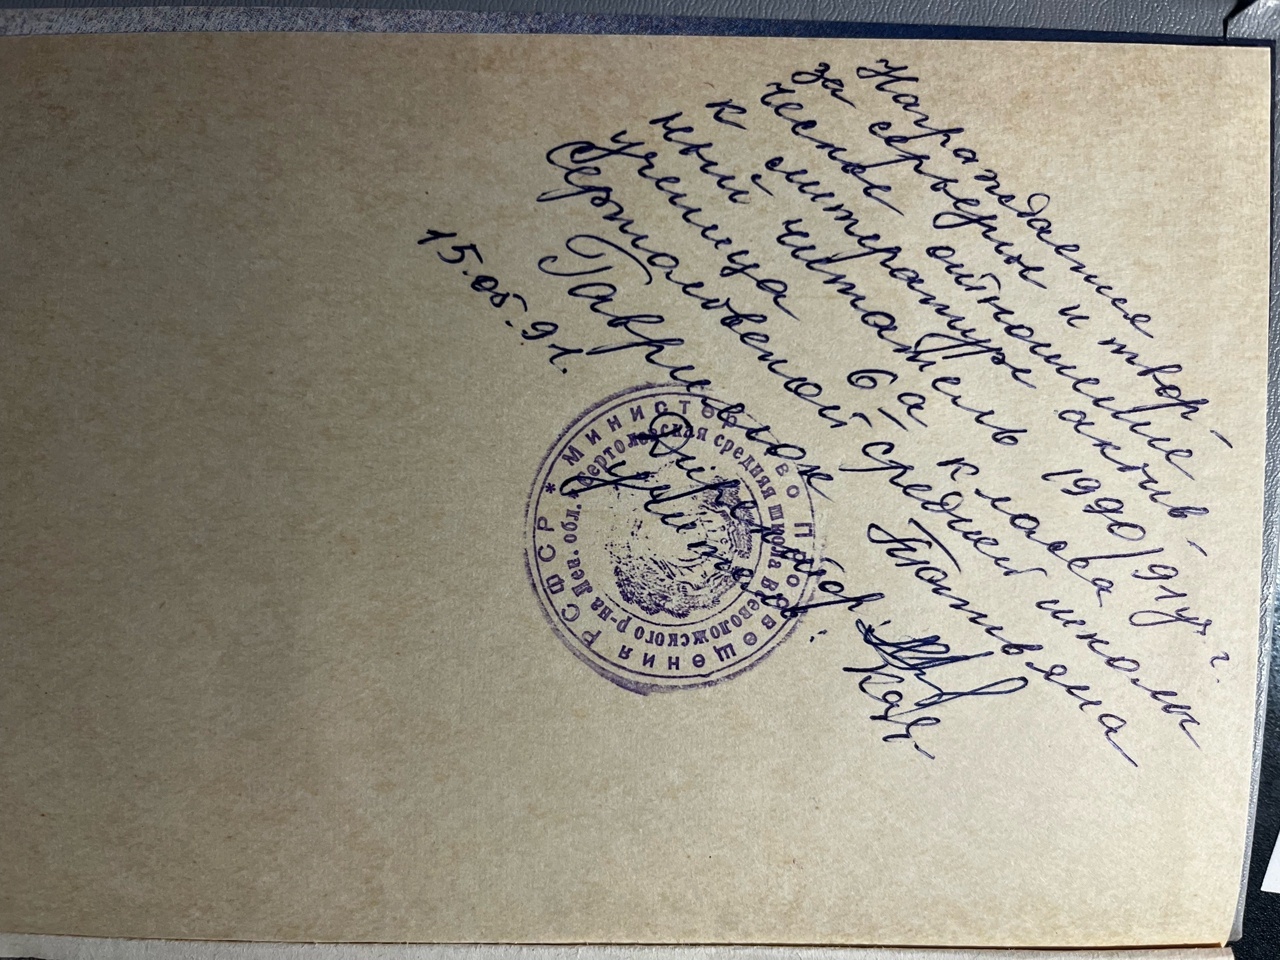 Награждается
за серьезное и твор-
ческое отношение
к литературе актив-
ный читатель 1990/91 уч. г.
ученица 6а класса
Сертоловской средней школы
Гаврилюк Татьяна
15.05.91.
Директор
* МИНИСТЕРСТВО ПРОСВЕЩЕНИЯ РСФСР
Сертоловская средняя школа Всеволожского р-на Лен. обл.